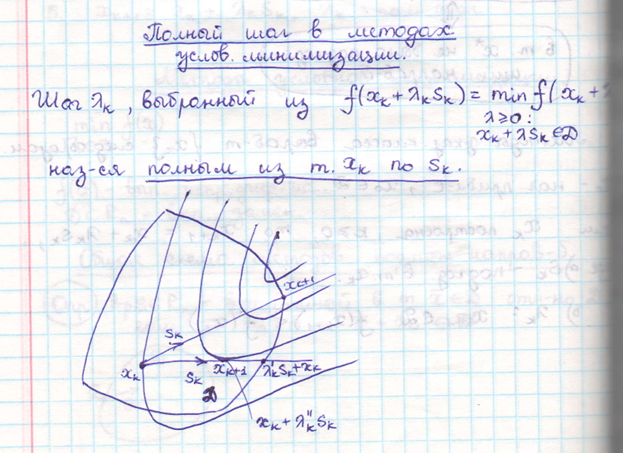 Полный шаг в методах
услов. минимизации.
Шаг λₖ, выбранный из f(xₖ + λₖSₖ) = min f(xₖ + λ
λ ≥ 0 :
xₖ + λSₖ ∈ D
наз-ся полным из т. xₖ по Sₖ.
xₖ₊₁
Sₖ
xₖ
Sₖ
xₖ₊₁
λ'ₖSₖ + xₖ
D
xₖ + λ''ₖSₖ